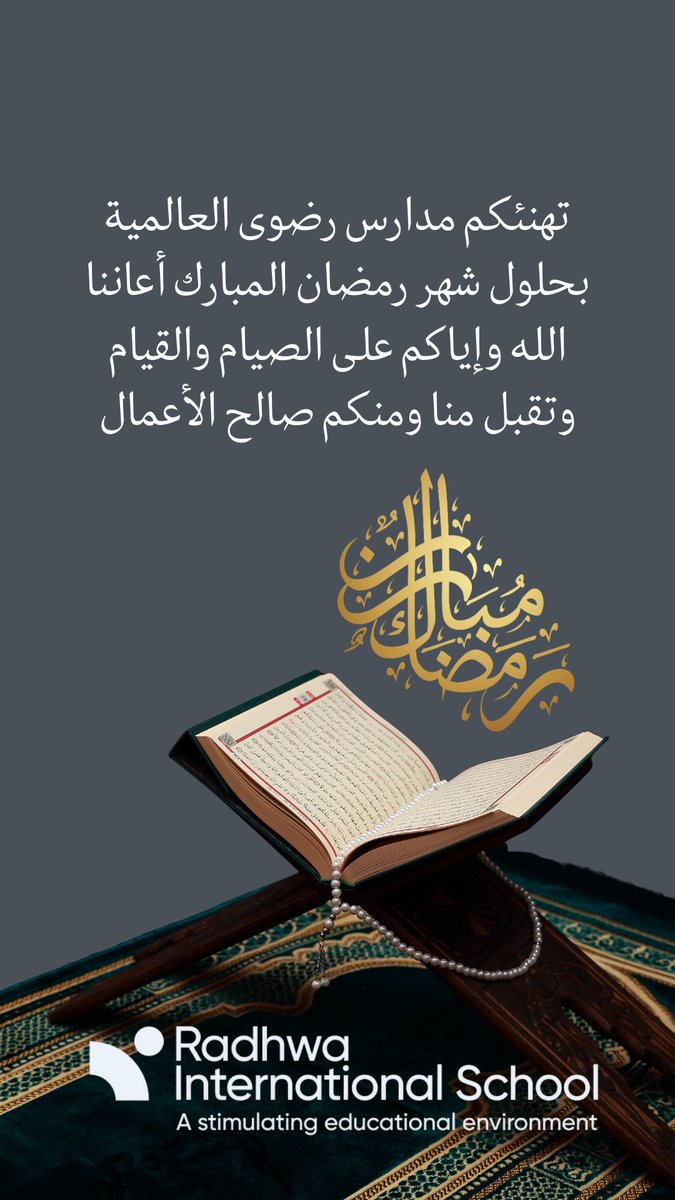 تهنئكم مدارس رضوى العالمية
بحلول شهر رمضان المبارك أعاننا
الله وإياكم على الصيام والقيام
وتقبل منا ومنكم صالح الأعمال
رَمَضَان مُبَارَك
Radhwa
International School
A stimulating educational environment